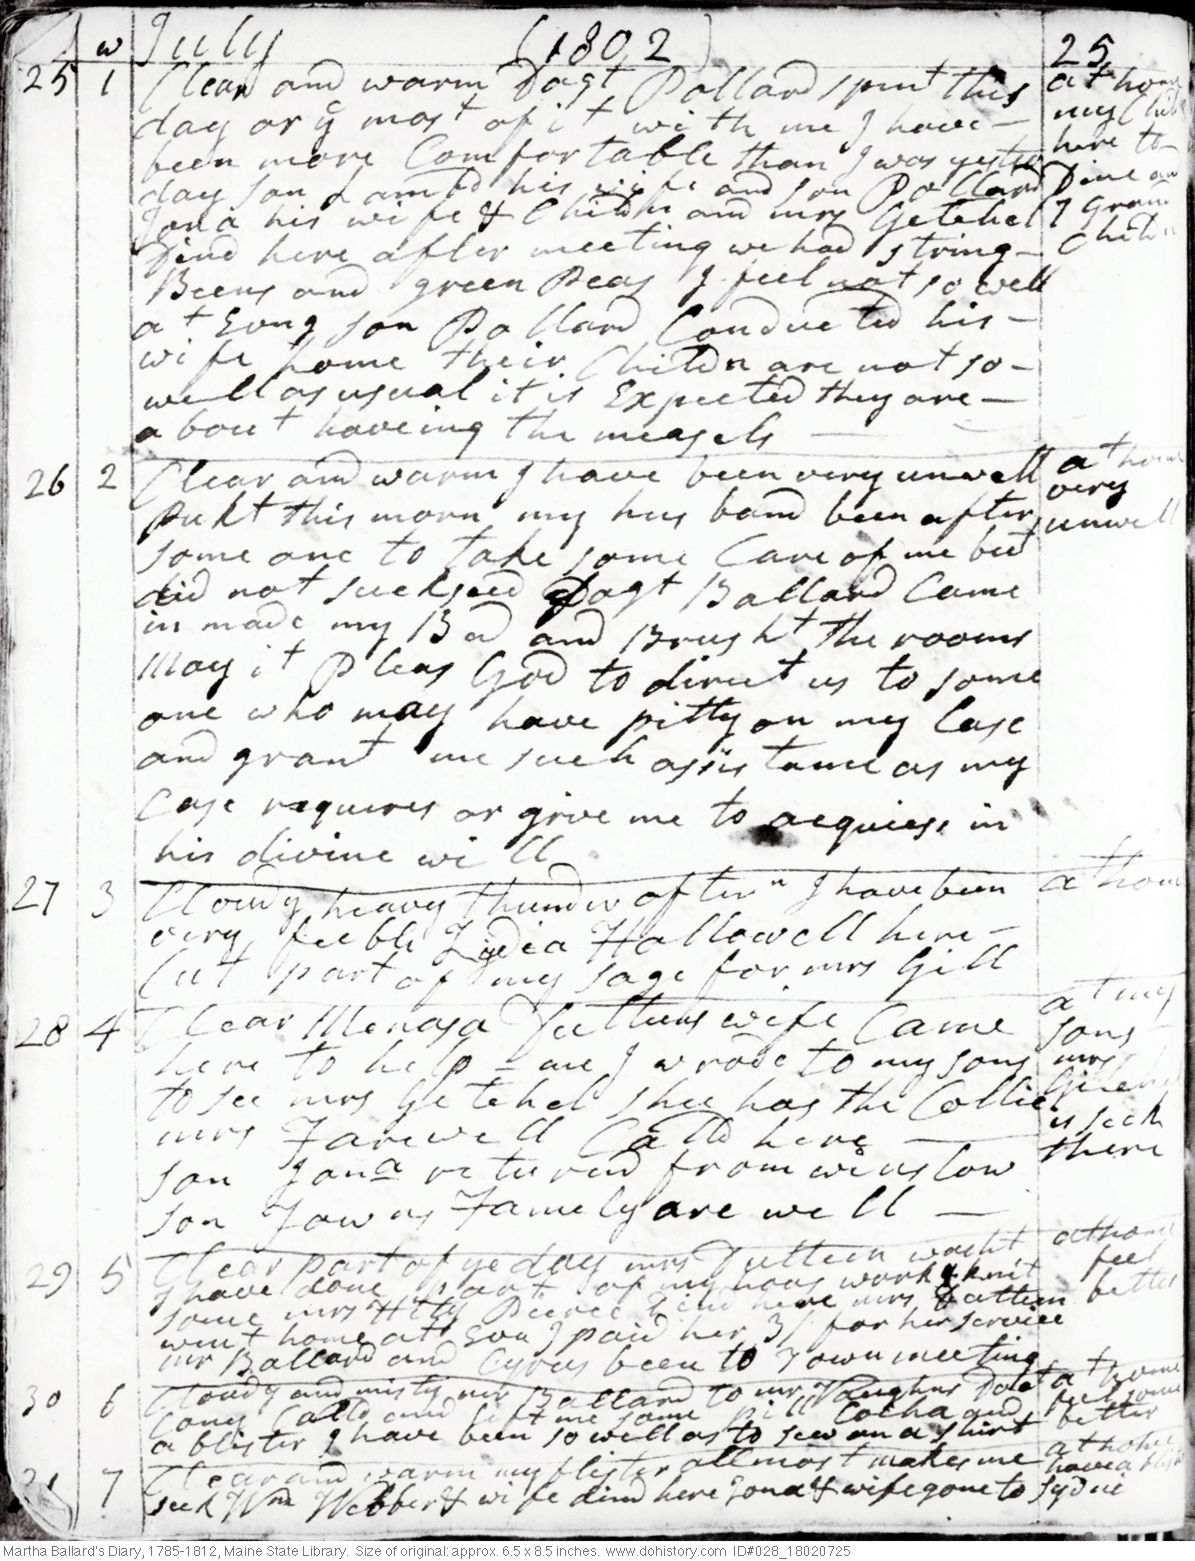 w July (1802) 25
25 1 Clear and warm Dagt Pollard spent this
day or ye most of it with me I have
been more Comfortable than I was yester
day son Lambd his wife and son Pollard
Jona his wife & Childn and mrs Getchel
Dind here after meeting we had string
Beens and green Peas I feel not so well
at Evng son Pollard Conducted his
wife home their Childn are not so
well as usual it is Expected they are
about haveing the measels
at home
my Child
here to
Dine and
7 grand
Childn
26 2 Clear and warm I have been very unwell
Pukt this morn my husband been after
some one to take some Care of me but
did not suckseed Dagt Ballard Came
in made my Bed and Brusht the rooms
May it Pleas God to direct us to some
one who may have pitty on my Case
and grant me such assistance as my
Case requires or give me to acquiess in
his divine will
at home
very
unwell
27 3 Cloudy heavy thunder aftern I have been
very feeble Lydia Hallowell here
Cut part of my sage for mrs Gill
at home
28 4 Clear Menasa wife Came
here to help me I wrode to my sons
to see mrs Getchel shee has the Collic
mrs Farewell Calld here
son Jona returnd from winslow
son Towns Famely are well
at my
sons
mrs
Getchel
is seck
there
29 5 Clear part of ye day mrs washt
I have done part of my hous work & knit
some mrs Peirce Dind here mrs
went home at Evn I paid her 3/ for her service
mr Ballard and Cyrus been to Town meeting
at home
feel
better
30 6 Cloudy and misty mr Ballard to mr Vaughns Doct
Cony Calld and left me some pill Cocha and
a blister I have been so well as to sew on a shirt
at home
feel some
better
31 7 Clear and warm my blister allmost makes me
seck Wm Webber & wife dind here Jona & wife gone to Sydnie
at home
have a blister
Martha Ballard's Diary, 1785-1812, Maine State Library. Size of original: approx. 6.5 x 8.5 inches. www.dohistory.com ID#028_18020725